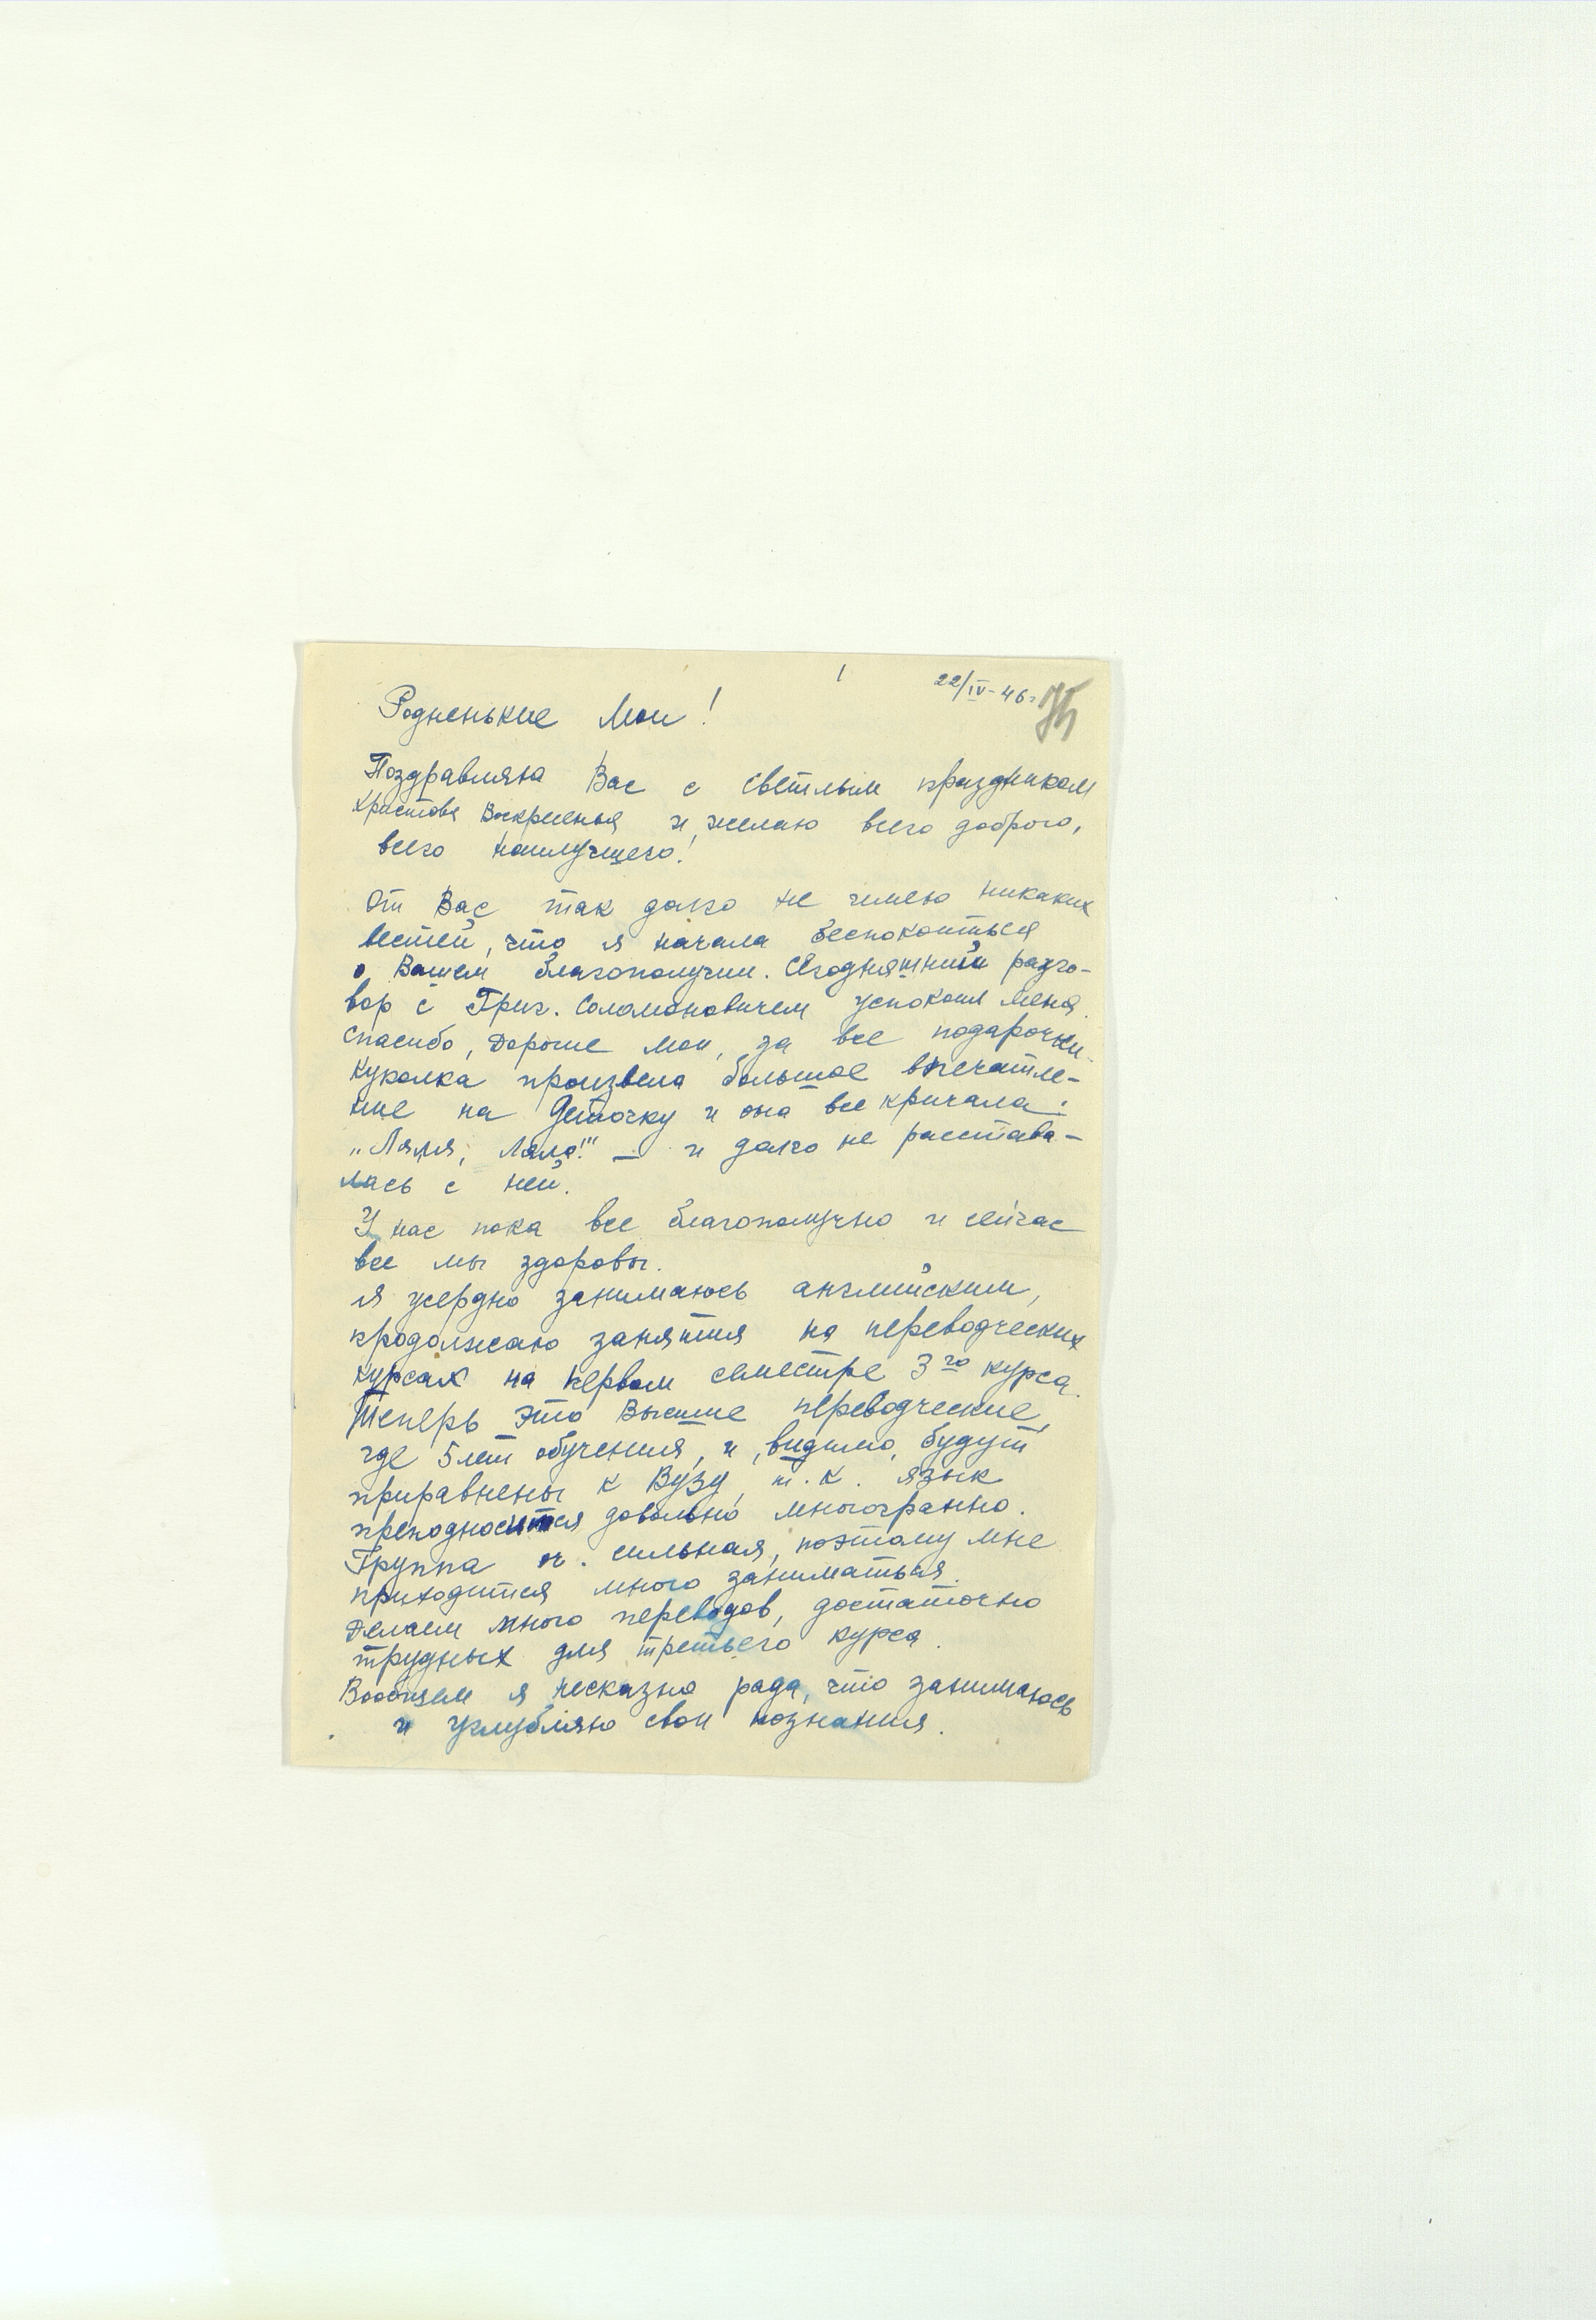 1
22/IV-46г.
Родненькие Мои!
Поздравляю Вас с светлым праздником
Христова Воскресенья и желаю всего доброго,
всего наилучшего!
От Вас так долго не имею никаких
вестей, что я начала беспокоиться
о Вашем благополучии. Сегодняшний разго-
вор с Григ. Соломоновичем успокоил меня.
Спасибо, Дорогие мои, за все подарочки.
Куколка произвела большое впечатле-
ние на Деточку и она все кричала:
"Ляля, Ляля!" — и долго не расстава-
лась с ней.
У нас пока все благополучно и сейчас
все мы здоровы.
Я усердно занимаюсь английским,
продолжаю занятия на переводческих
курсах на первом семестре 3го курса.
Теперь это Высшие переводческие,
где 5 лет обучения, и, видимо, будут
приравнены к Вузу, т.к. язык
преподносится довольно многогранно.
Группа оч. сильная, поэтому мне
приходится много заниматься.
Делаем много переводов, достаточно
трудных для третьего курса.
Вообщем я несказно рада, что занимаюсь
и углубляю свои познания.